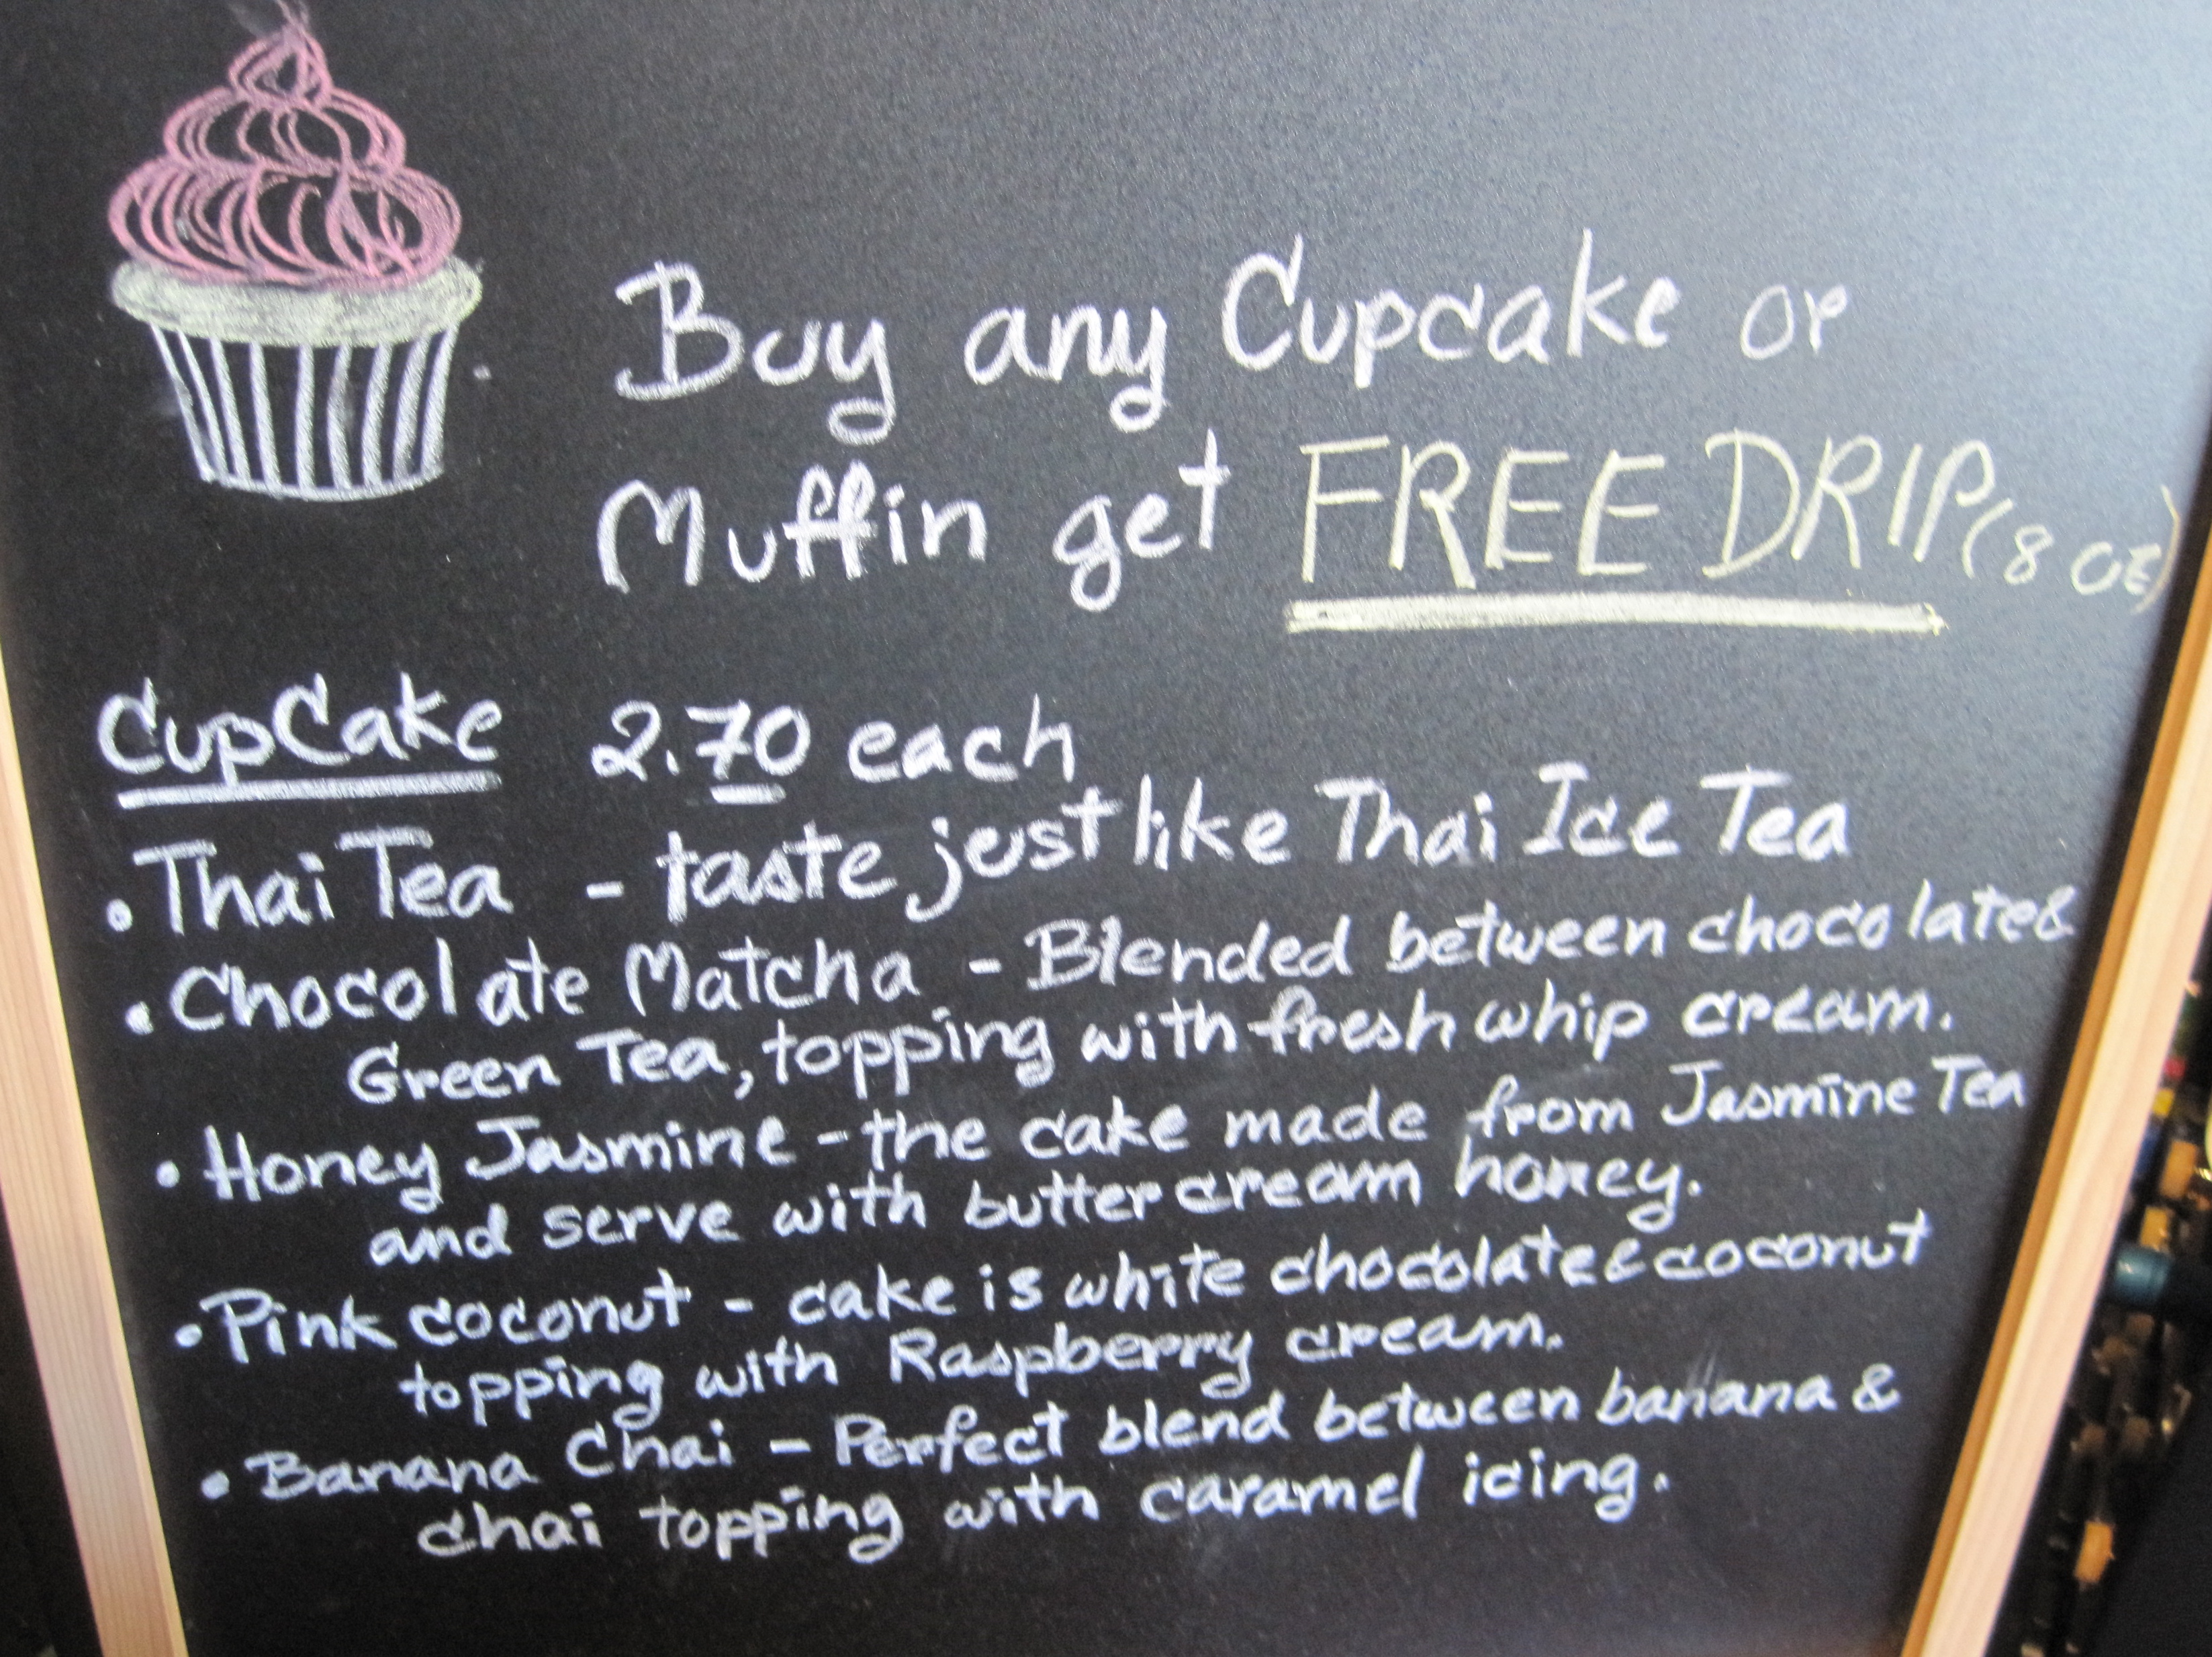 Buy any Cupcake or
Muffin get FREE DRIP (8 oz)
CupCake 2.70 each
• Thai Tea - taste just like Thai Ice Tea
• Chocolate Matcha - Blended between chocolate &
Green Tea, topping with fresh whip cream.
• Honey Jasmine - the cake made from Jasmine Tea
and serve with buttercream honey.
• Pink coconut - cake is white chocolate & coconut
topping with Raspberry cream.
• Banana Chai - Perfect blend between banana &
chai topping with caramel icing.